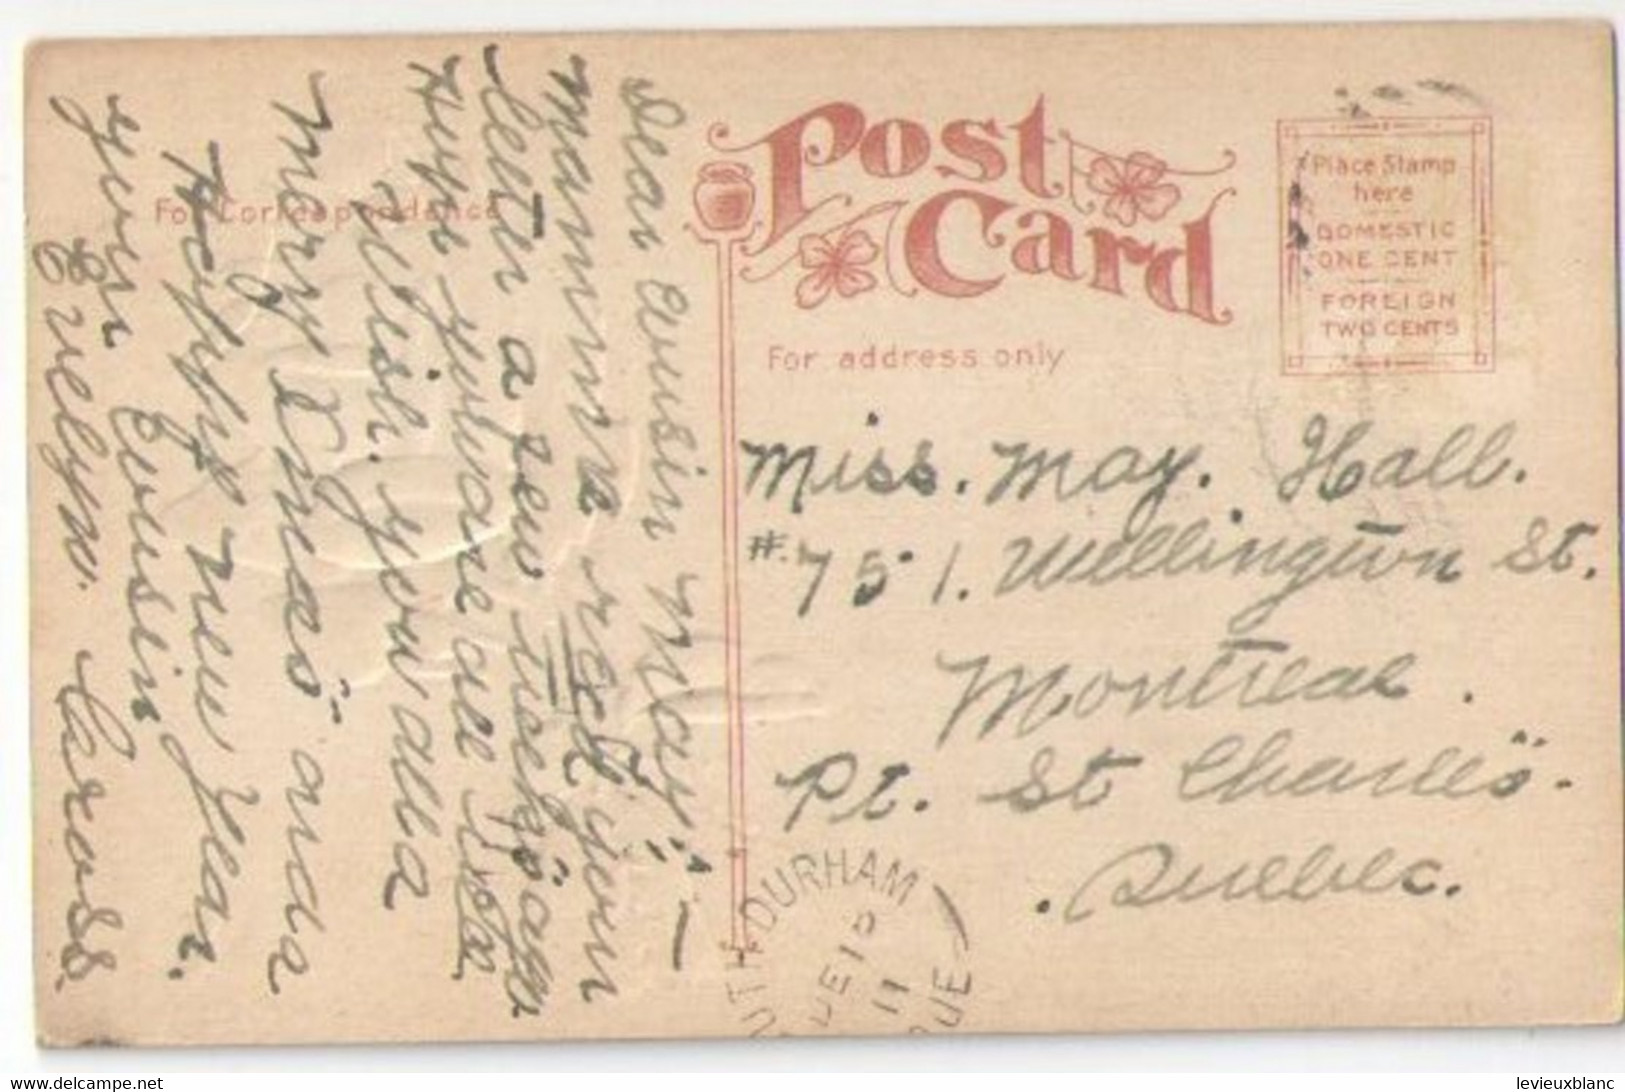 Dear Cousin May:-
Mamma rec'd your
letter a few weeks ago
Hope you are all well
Wish you all a
Merry Xmas and a
Happy New Year.
your Cousin
Evelyn Caross.
For Correspondence
Post
Card
For address only
Place Stamp
here
DOMESTIC
ONE CENT
FOREIGN
TWO CENTS
Miss. May. Hall.
#.751. Wellington St.
Montreal.
Pt. St Charles.
Quebec.
UTH DURHAM
DE 19
11
QUE
Delcampe.net
levieuxblanc